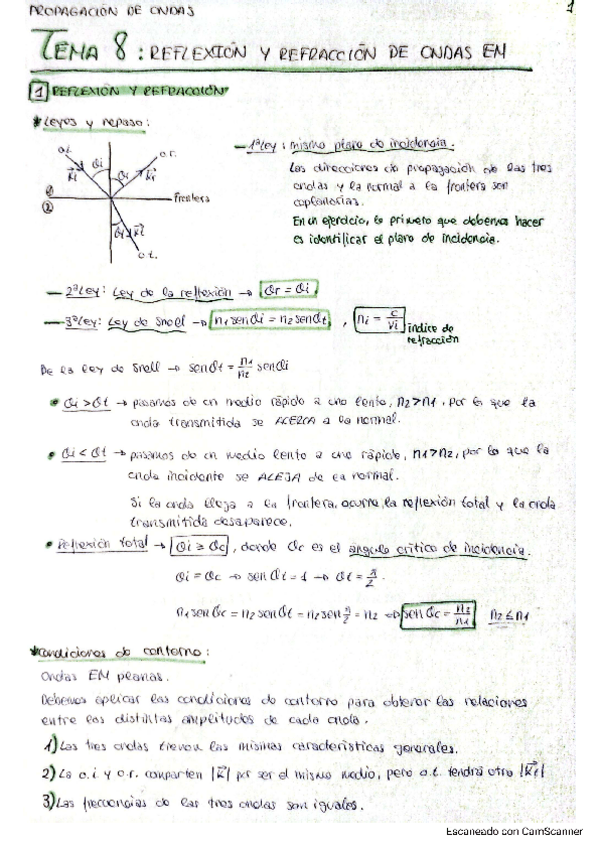 PROPAGACIÓN DE ONDAS
1
TEMA 8: REFLEXIÓN Y REFRACCIÓN DE ONDAS EM
1 REFLEXIÓN Y REFRACCIÓN
* Leyes y repaso:
o.i.
o.r.
θi
θr
k⃗i
k⃗r
① 
②
Frontera
θt
k⃗t
o.t.
— 1ª Ley: mismo plano de incidencia.
Las direcciones de propagación de las tres
ondas y la normal a la frontera son
coplanarias.
En un ejercicio, lo primero que debemos hacer
es identificar el plano de incidencia.
— 2ª Ley: Ley de la reflexión → θr = θi
— 3ª Ley: Ley de Snell → n1 senθi = n2 senθt , ni = c/vi índice de
refracción
De la ley de Snell → senθt = n1/n2 senθi
• θi > θt → pasamos de un medio rápido a uno lento, n2 > n1, por lo que la
onda transmitida se ACERCA a la normal.
• θi < θt → pasamos de un medio lento a uno rápido, n1 > n2, por lo que la
onda incidente se ALEJA de la normal.
Si la onda llega a la frontera, ocurre la reflexión total y la onda
transmitida desaparece.
• Reflexión total → θi ≥ θc, donde θc es el ángulo crítico de incidencia.
θi = θc → senθt = 1 → θt = π/2
n1 senθc = n2 senθt = n2 sen π/2 = n2 ⇒ senθc = n2/n1 n2 ≤ n1
* Condiciones de contorno:
Ondas EM planas.
Debemos aplicar las condiciones de contorno para obtener las relaciones
entre las distintas amplitudes de cada onda.
1) Las tres ondas tienen las mismas características generales.
2) La o.i. y o.r. comparten |k⃗| por ser el mismo medio, pero o.t. tendrá otro |k⃗t|
3) Las frecuencias de las tres ondas son iguales.
Escaneado con CamScanner